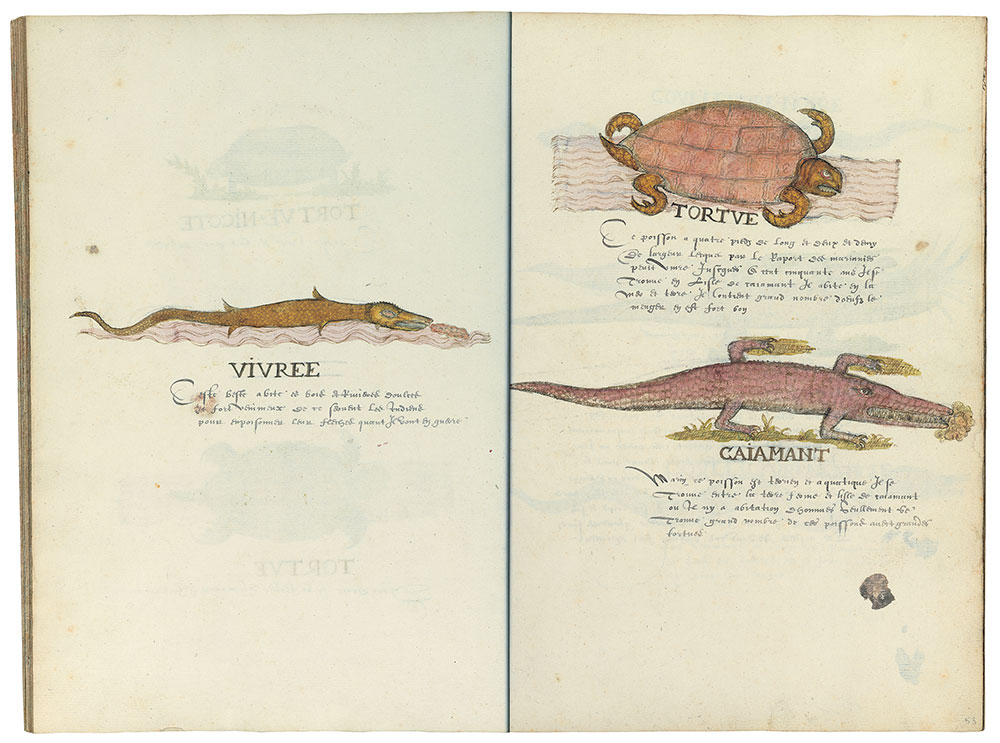 VIVREE
Ceste beste abite es bois & Rivieres doulces
et fort venimeux de ce servent les Indiens
pour enpoisonner leur fleches quant Il vont en guere
TORTVE
Ce poisson a quatre pieds de long et deux et demy
de largeur lequel par le Raport des
peult vivre Jusques a cent cinquante ans Il se
Trouve en L'isle de caiamant Il abite en la
mer et terre Il contient grand nombre d'oeufz le
menger en est fort bon
CAIAMANT
ce poisson est terrien et aquatique Il se
Trouve entre la terre ferme et l'isle de caiamant
ou Il ny a abitation d'hommes seullement se
Trouve grand nombre de ces poissons avec grandes
tortues
TORTVE
TORTVE
53